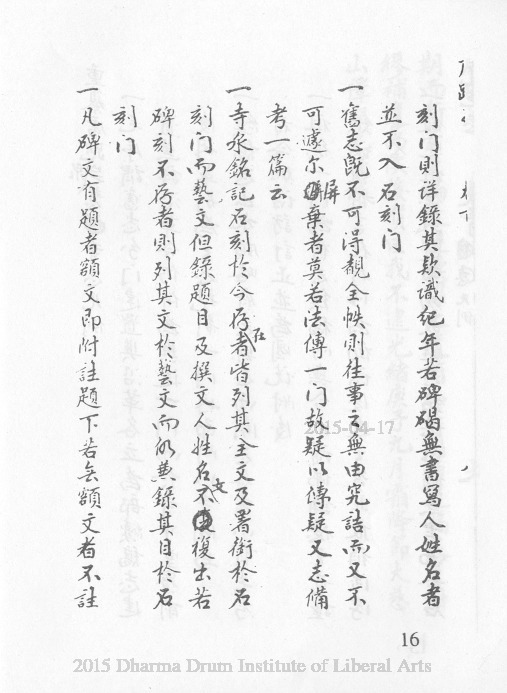 刻门則详錄其欵識纪年若碑碣無書寫人姓名者
並不入石刻门
一舊志既不可淂覩全帙則往事之無由究詰而又不
可遽尔屏棄者莫若法傳一门故疑以傳疑又志備
考一篇云
一寺泉銘記石刻扵今存在者皆列其全文及署銜扵石
刻门而藝文但錄題目及撰文人姓名文不復出若
碑刻不存者則列其文扵藝文而仍兼錄其目扵石
刻门
一凡碑文有題者額文即附註題下若無額文者不註
2015-04-17
16
2015 Dharma Drum Institute of Liberal Arts